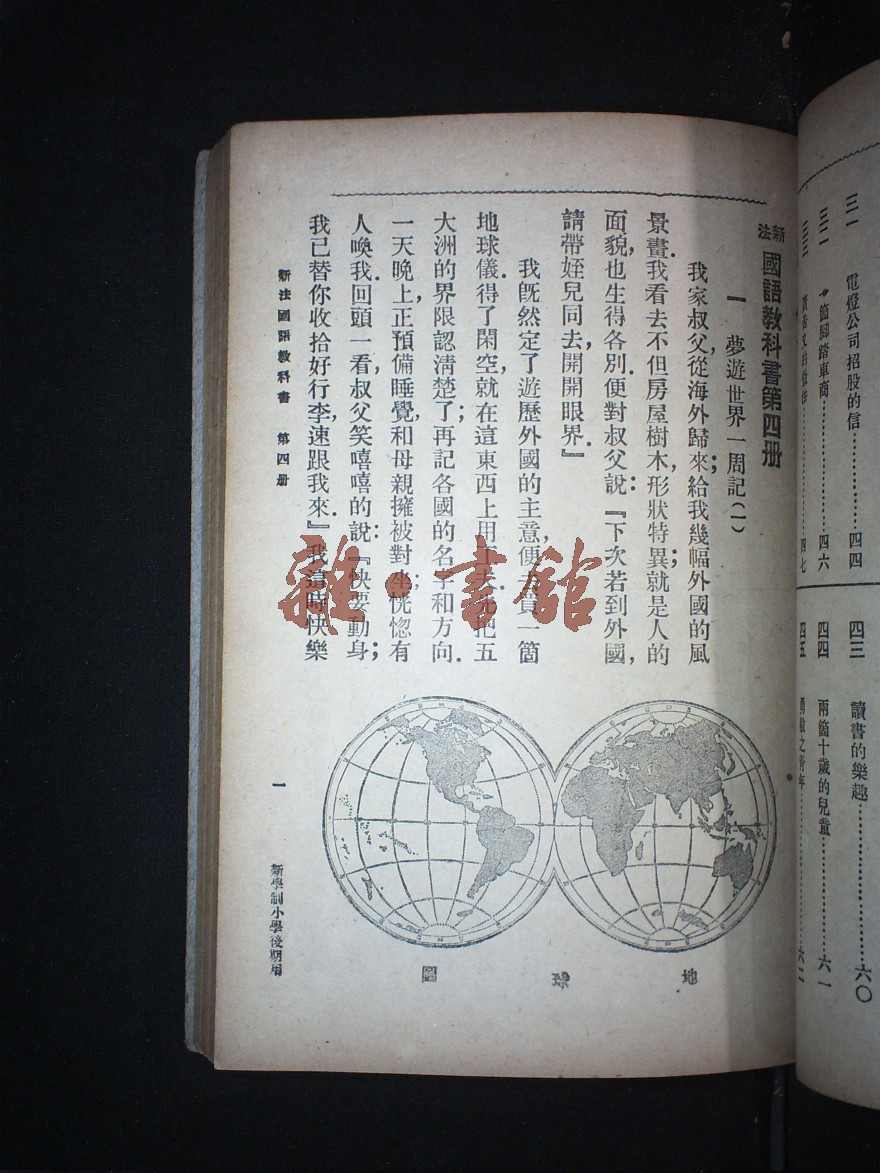 三一 電燈公司招股的信…………四四
三二 一箇腳踏車商…………四六
三三 …………四七
四三 讀書的樂趣…………六〇
四四 兩箇十歲的兒童…………六一
四五 勇敢之青年…………六二
新法國語教科書第四册
一 夢遊世界一周記(一)
我家叔父,從海外歸來;給我幾幅外國的風
景畫.我看去,不但房屋樹木,形狀特異;就是人的
面貌,也生得各別.便對叔父說:『下次若到外國,
請帶姪兒同去,開開眼界.』
我旣然定了遊歷外國的主意,便去買一箇
地球儀.得了閑空,就在這東西上用工夫.先把五
大洲的界限認清楚了;再記各國的名字和方向.
一天晚上,正預備睡覺,和母親擁被對坐;恍惚有
人喚我.回頭一看,叔父笑嘻嘻的說:『快要動身;
我已替你收拾好行李,速跟我來.』我這時快樂
地球圖
新法國語教科書 第四册
一
新學制小學後期用
雜·書館